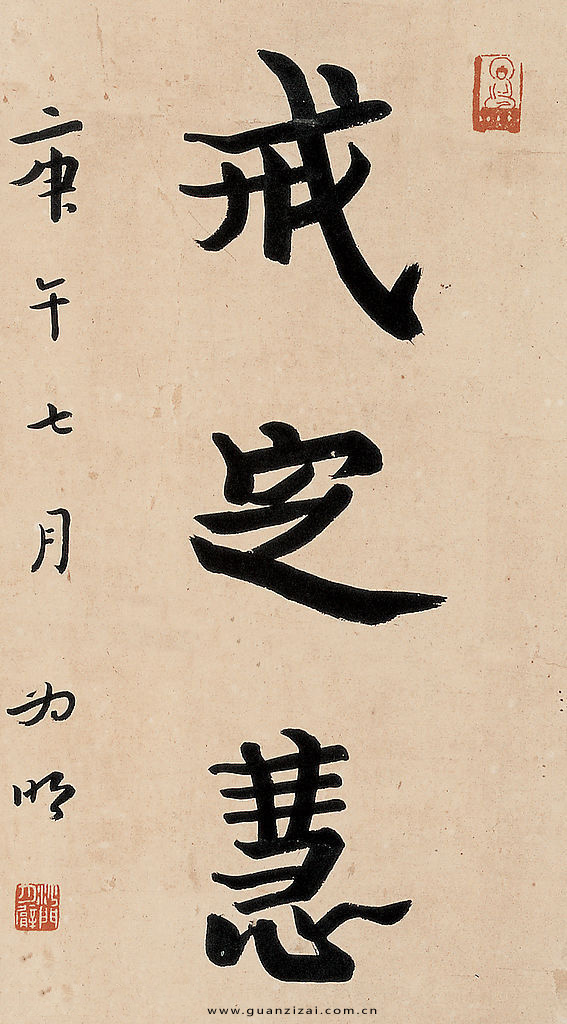 戒定慧
庚午七月 为明
沙門月臂
www.guanzizai.com.cn